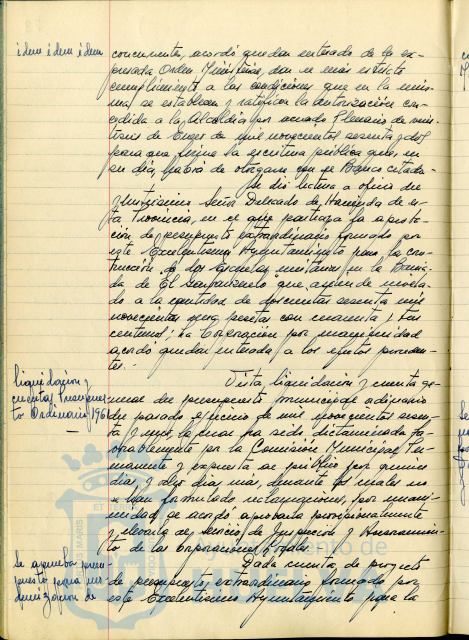 idem idem idem
concurrentes, acordó quedar enterado de la ex-
presada Orden Ministerial, dar el más estricto
cumplimiento a las condiciones que en la mis-
ma se establecen y ratificar la autorización con-
cedida a la Alcaldía por acuerdo Plenario de vein-
tiseis de Enero de mil novecientos sesenta y dos
para que firme la escritura pública que, en
su día, habrá de otorgarse con el Banco citado.
Se dió lectura a oficio del
Ilustrísimo Señor Delegado de Hacienda de es-
ta Provincia, en el que participa la aproba-
ción de presupuesto extraordinario formado por
este Excelentísimo Ayuntamiento para la cons-
trucción de dos Escuelas unitarias en la Barria-
da de El que asciende
a la cantidad de doscientas sesenta mil
novecientas pesetas con cuarenta y
centimos; la Corporación por unanimidad
acordó quedar enterada a los efectos proceden-
tes.
liquidación y
cuentas Presupues-
to Ordinario 1961
Vista liquidación y cuenta ge-
neral del presupuesto municipal ordinario
del pasado ejercicio de mil novecientos sesen-
ta y uno, la cual ha sido dictaminada fa-
vorablemente por la Comisión Municipal Per-
manente y expuesta al público por quince
días, y ocho días más, durante los cuales no
se han formulado reclamaciones, por unani-
midad se acordó aprobarla provisionalmente
y elevarla al Servicio de Inspección y Asesoramien-
to de las Corporaciones Locales.
Se aprueba presu-
puesto para ur-
banización de
Dada cuenta de proyecto
de presupuesto extraordinario formado por
este Excelentísimo Ayuntamiento para la